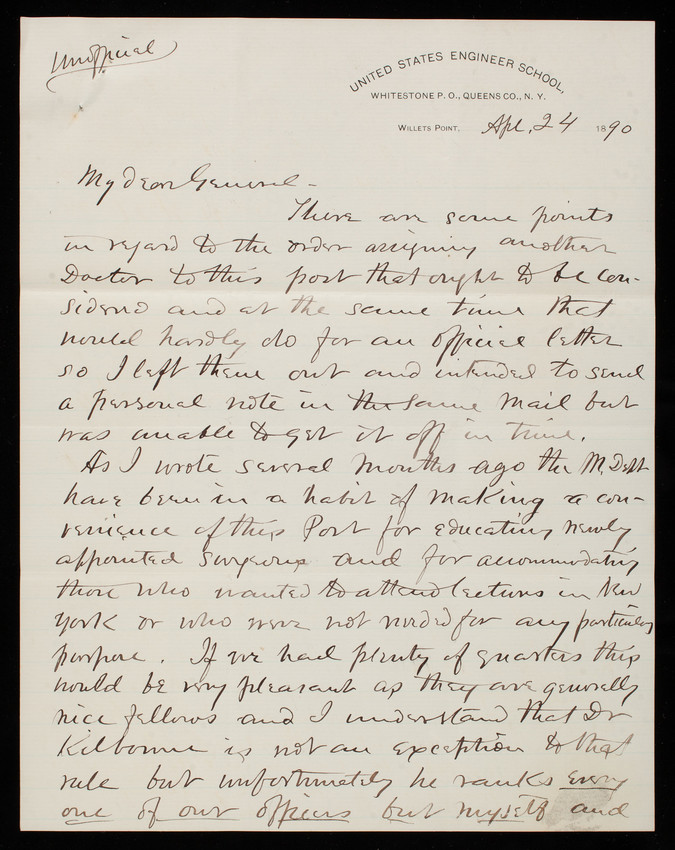 Unofficial
UNITED STATES ENGINEER SCHOOL,
WHITESTONE P. O., QUEENS CO., N. Y.
WILLETS POINT, Apl, 24 1890
My dear General -
There are some points
in regard to the order assigning another
Doctor to this post that ought to be con-
sidered and at the same time that
would hardly do for an official letter
so I left them out and intended to send
a personal note in the same mail but
was unable to get it off in time.
As I wrote several months ago the M. Dept
have been in a habit of making a con-
venience of this Post for educating newly
appointed surgeons and for accommodating
those who wanted to attend lectures in New
York or who were not needed for any particular
purpose. If we had plenty of quarters this
would be very pleasant as they are generally
nice fellows and I understand that Dr
Kilbourne is not an exception to that
rule but unfortunately he ranks every
one of our officers but myself and